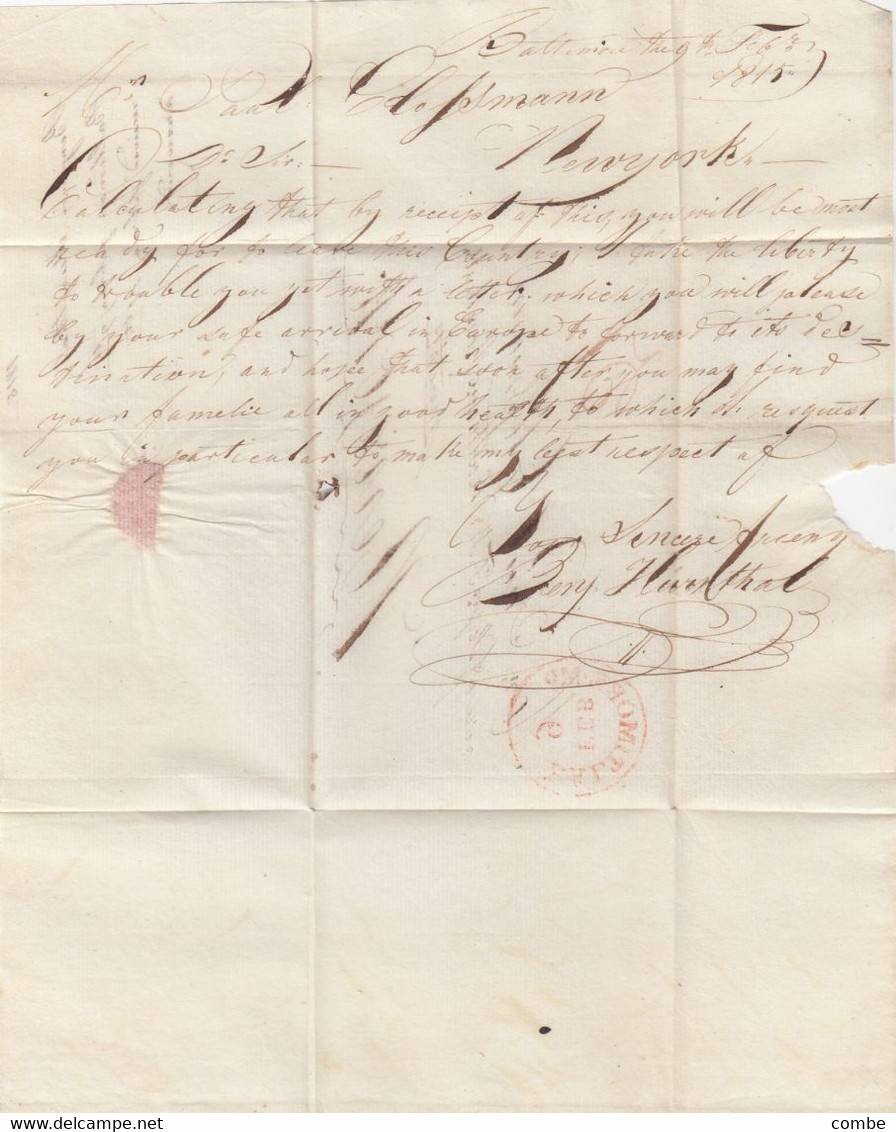 Baltimore the 9th Feb.ry
1815
Mr. Paul Clossmann
Dr. Sir. — Newyork. —
Calculating that by receipt of this, you will be most
reh dy for to leave this Country; I take the liberty
to trouble you yet with a letter. which you will please
by your safe arrival in Europe to forward to its des=
tination, and hope that soon after you may find
your famelie all in good health, to which I resquest
you in particular to make my best respect of
Your Sincere
Benj.
FEB
9
combe
Visit delcampe.net